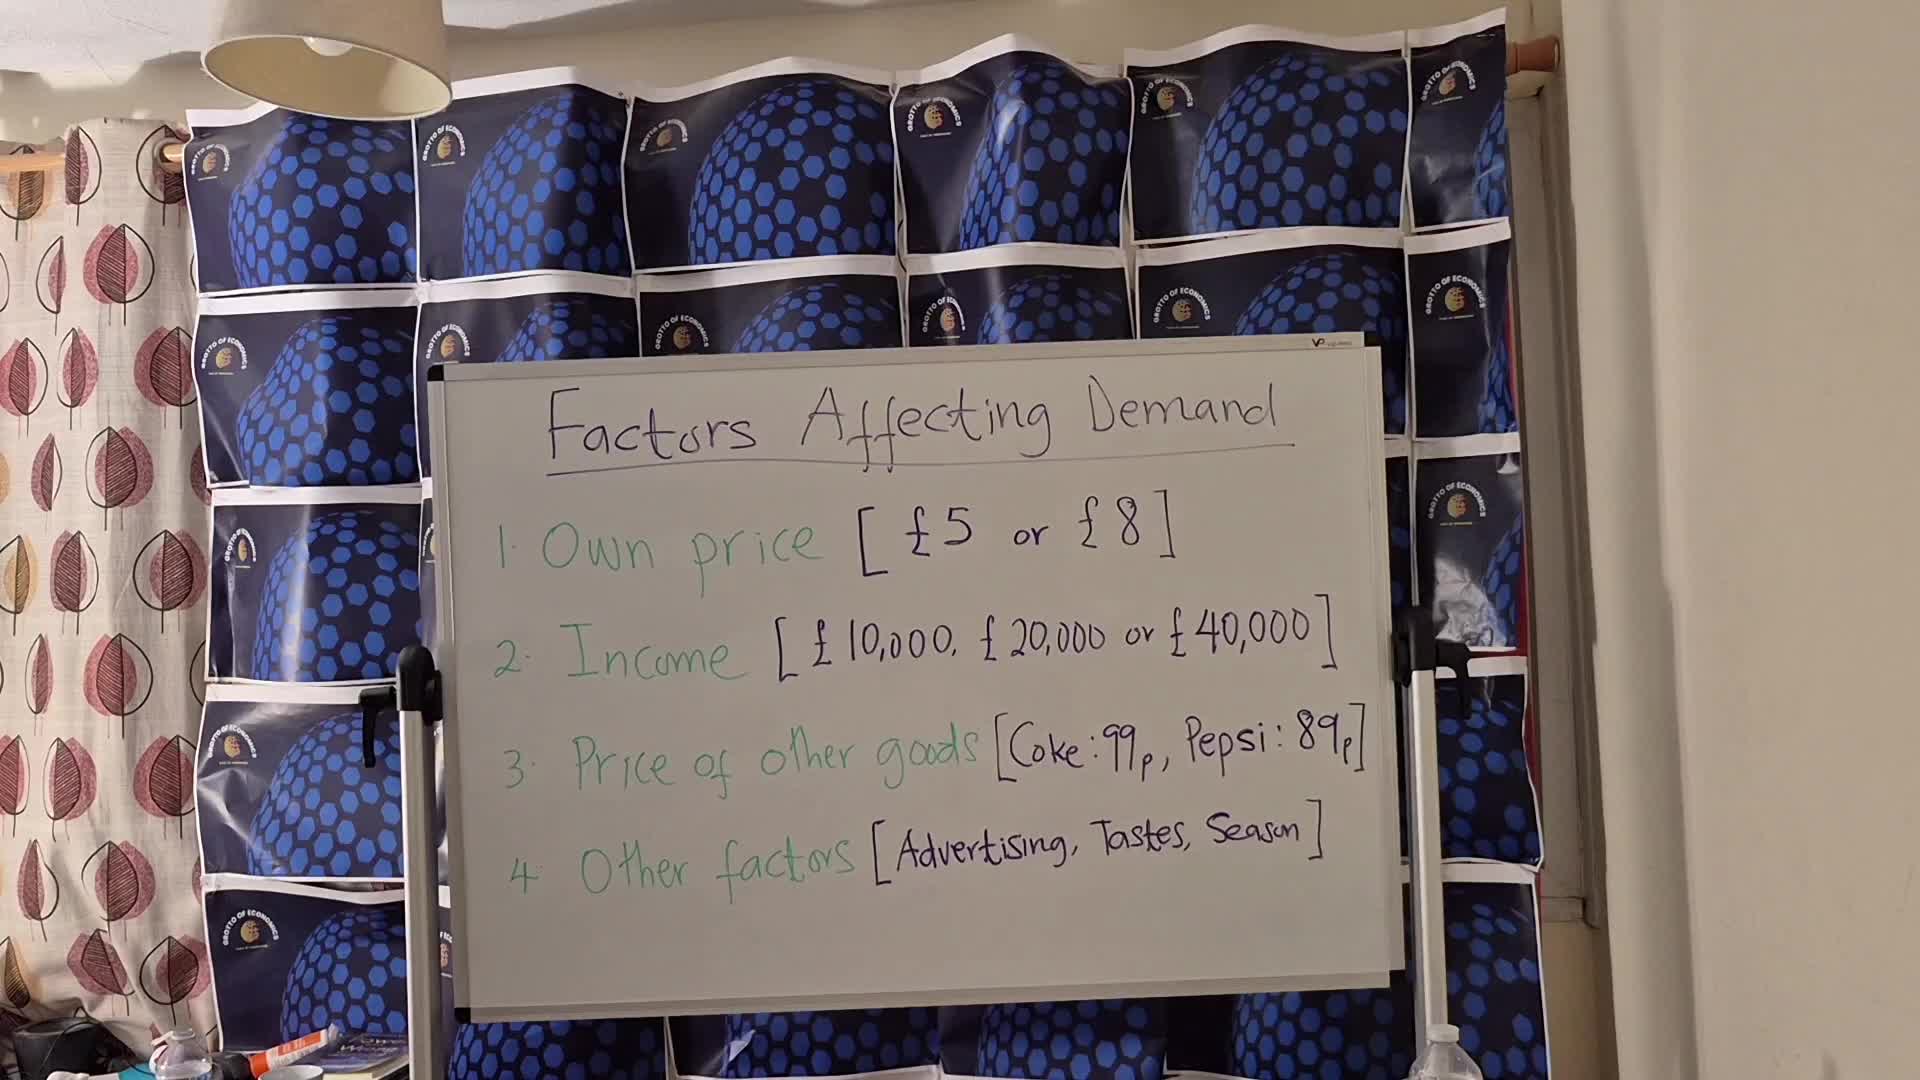 Factors Affecting Demand
1. Own price [£5 or £8]
2. Income [£10,000, £20,000 or £40,000]
3. Price of other goods [Coke: 99p, Pepsi: 89p]
4. Other factors [Advertising, Tastes, Season]
GROTTO OF ECONOMICS